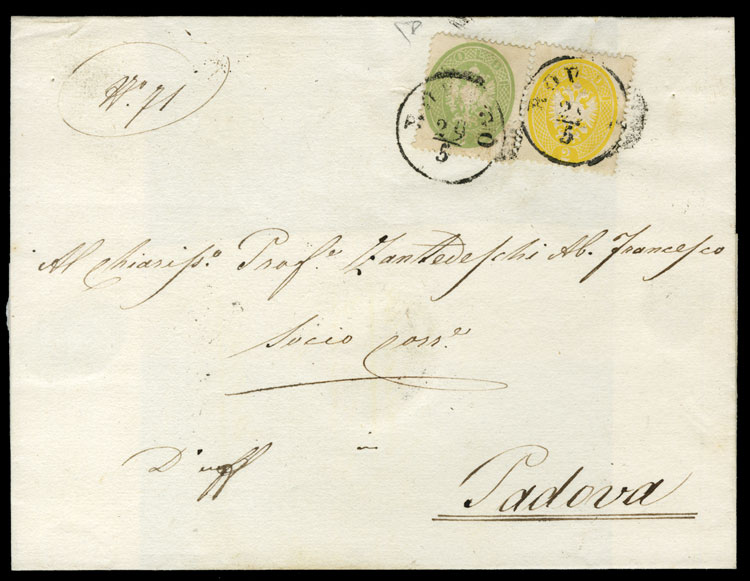 N.° 71
ROV
29
5
O
ROV
5
Al Chiariss.° Prof.r Zantedeschi Ab. Francesco
Socio Corr.e
D'uff
in
Padova